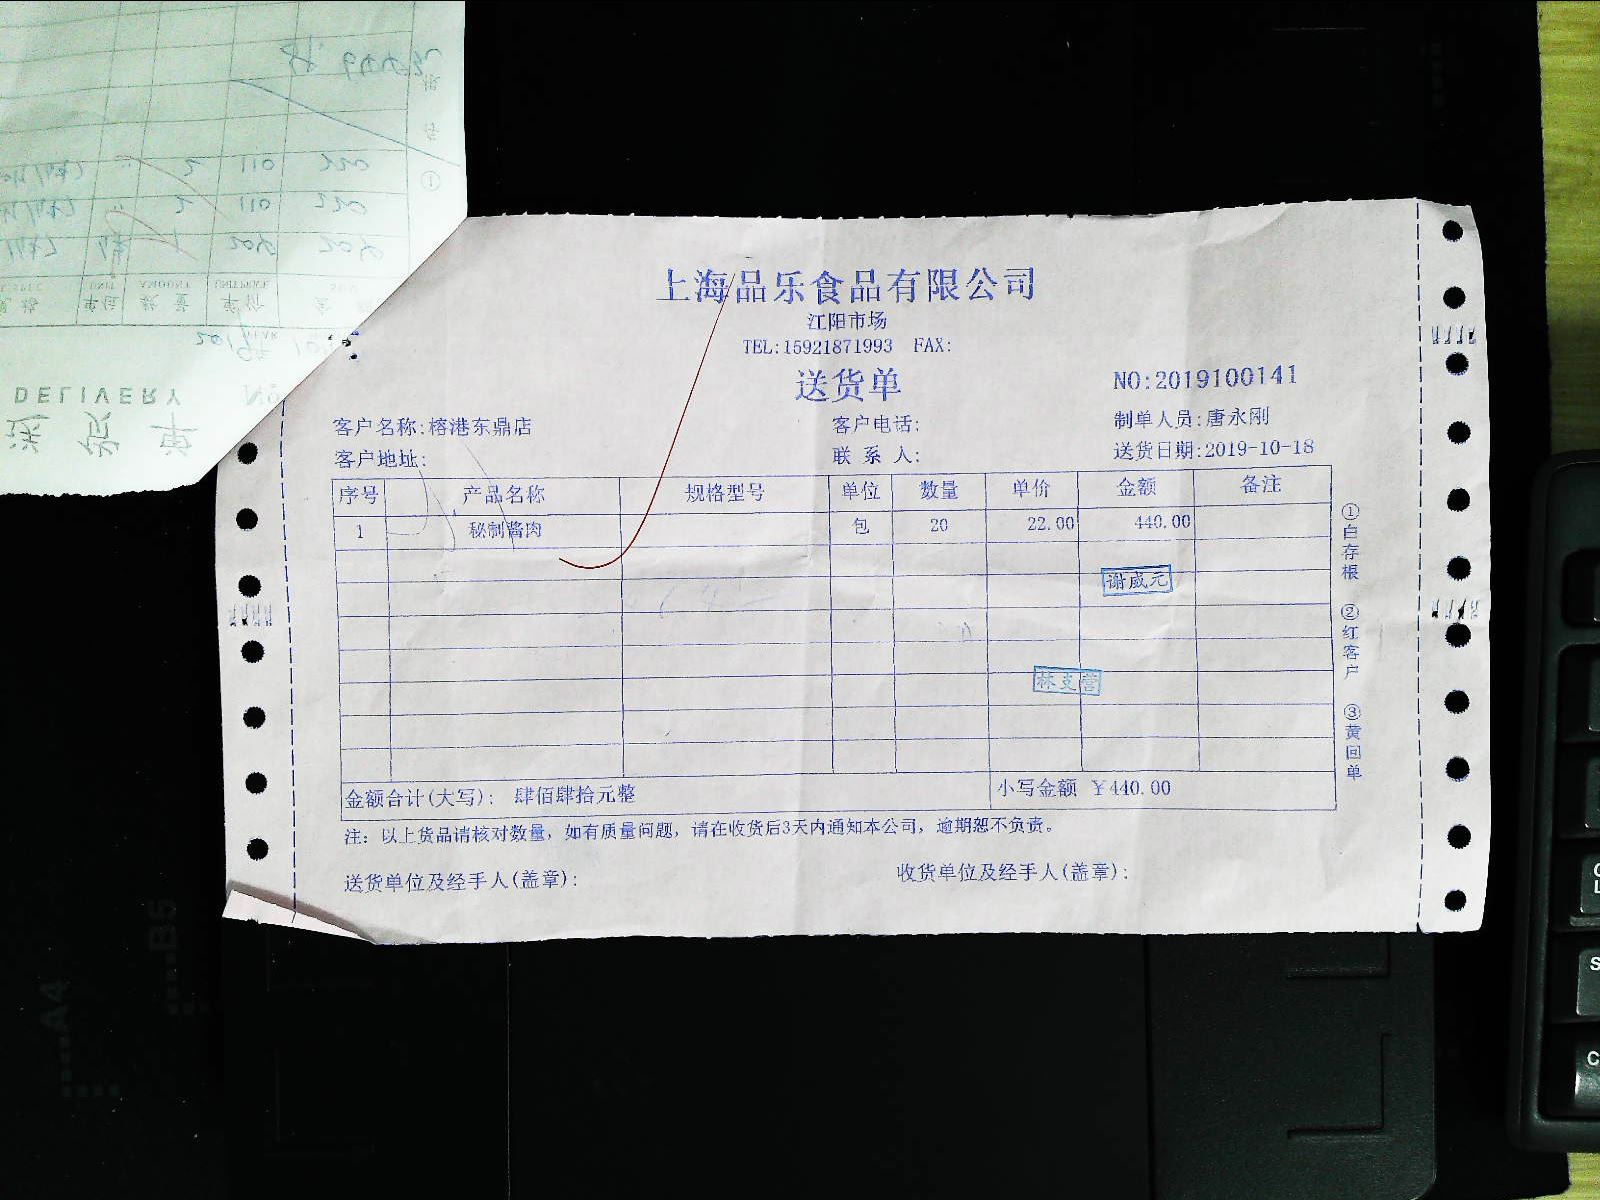 上海品乐食品有限公司
江阳市场
TEL:15921871993 FAX:
送货单
NO:2019100141
客户名称:榕港东鼎店 客户电话: 制单人员:唐永刚
客户地址: 联 系 人: 送货日期:2019-10-18
序号 产品名称 规格型号 单位 数量 单价 金额 备注
1 秘制酱肉 包 20 22.00 440.00
谢威元
林支营
金额合计(大写): 肆佰肆拾元整 小写金额 ￥440.00
注: 以上货品请核对数量, 如有质量问题, 请在收货后3天内通知本公司, 逾期恕不负责。
送货单位及经手人(盖章): 收货单位及经手人(盖章):
①白存根 ②红客户 ③黄回单
DELIVERY
No
UNIT AMOUNT UNITPRICE
单位 数量 单价 金
110
110
A4
B5